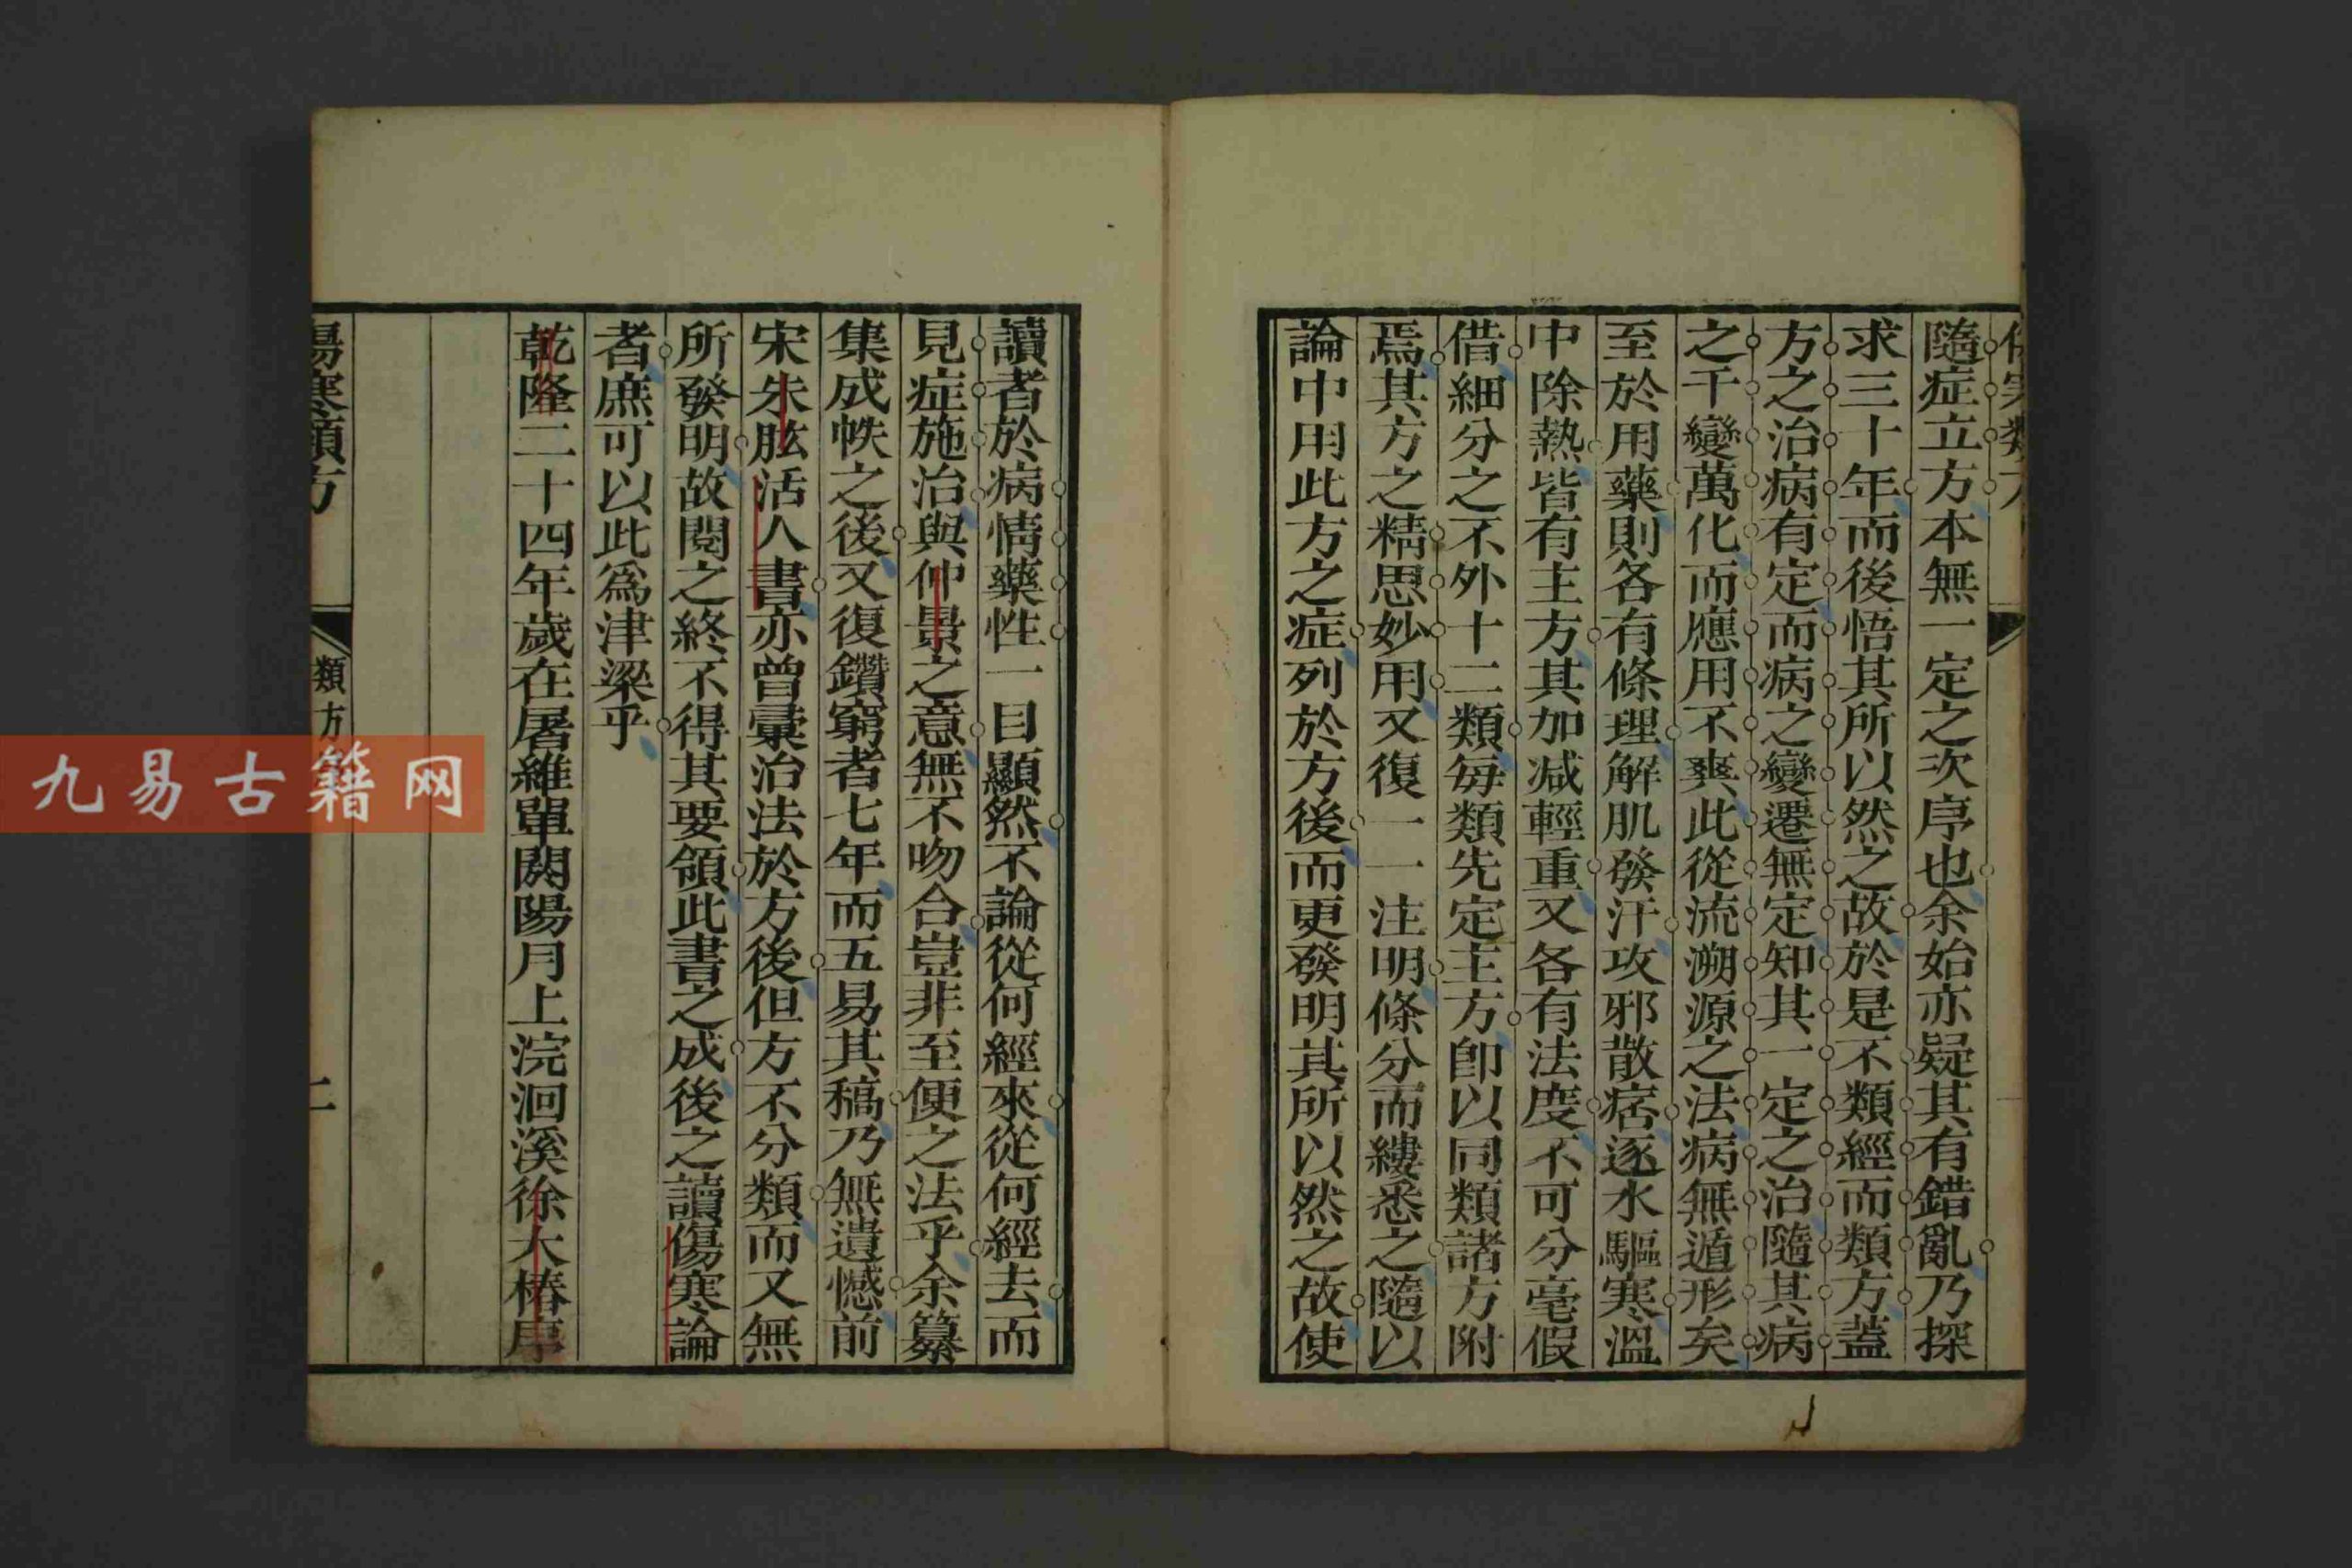 隨症立方本無一定之次序也余始亦疑其有錯亂乃探
求三十年而後悟其所以然之故於是不類經而類方蓋
方之治病有定而病之變遷無定知其一定之治隨其病
之千變萬化而應用不爽此從流溯源之法病無遁形矣
至於用藥則各有條理解肌發汗攻邪散痞逐水驅寒溫
中除熱皆有主方其加減輕重又各有法度不可分毫假
借細分之不外十二類每類先定主方卽以同類諸方附
焉其方之精思妙用又復一一注明條分而縷悉之隨以
論中用此方之症列於方後而更發明其所以然之故使
讀者於病情藥性一目顯然不論從何經來從何經去而
見症施治與仲景之意無不吻合豈非至便之法乎余纂
集成帙之後又復鑽窮者七年而五易其稿乃無遺憾前
宋朱肱活人書亦曾彙治法於方後但方不分類而又無
所發明故閱之終不得其要領此書之成後之讀傷寒論
者庶可以此爲津梁乎
乾隆二十四年歲在屠維單閼陽月上浣洄溪徐大椿序
傷寒類方
類方
二
九易古籍网